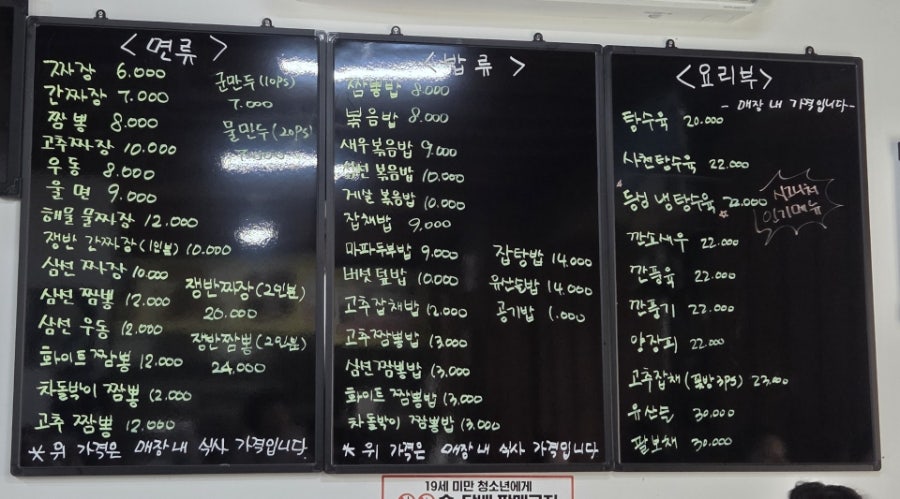 <면류>
짜장 6.000
간짜장 7.000
짬뽕 8.000
고추짜장 10.000
우동 8.000
울면 9.000
해물 물짜장 12.000
쟁반 간짜장(1인분) 10.000
삼선 짜장 10.000
삼선 짬뽕 12.000
삼선 우동 12.000
화이트 짬뽕 12.000
차돌박이 짬뽕 12.000
고추 짬뽕 12.000
군만두(10ps)
7.000
물만두(20ps)
쟁반짜장(2인분)
20.000
쟁반짬뽕(2인분)
24,000
*위 가격은 매장내 식사 가격입니다
<밥류>
짬뽕밥 8.000
볶음밥 8.000
새우볶음밥 9.000
삼선 볶음밥 10.000
게살 볶음밥 10.000
잡채밥 9,000
마파두부밥 9.000
버섯덮밥 10.000
고추잡채밥 12.000
고추짬뽕밥 13.000
삼선짬뽕밥 13,000
화이트 짬뽕밥 13.000
차돌박이 짬뽕밥 13.000
잡탕밥 14.000
유산슬밥 14.000
공기밥 1.000
*위 가격은 매장내 식사 가격입니다
<요리부>
- 매장 내 가격입니다-
탕수육 20.000
사천탕수육 22.000
등심 냉탕수육 22.000
인기메뉴
깐쇼새우 22.000
깐풍육 22.000
깐풍기 22.000
양장피 22.000
고추잡채(꽃빵3ps) 23.000
유산슬 30.000
팔보채 30.000
19세 미만 청소년에게